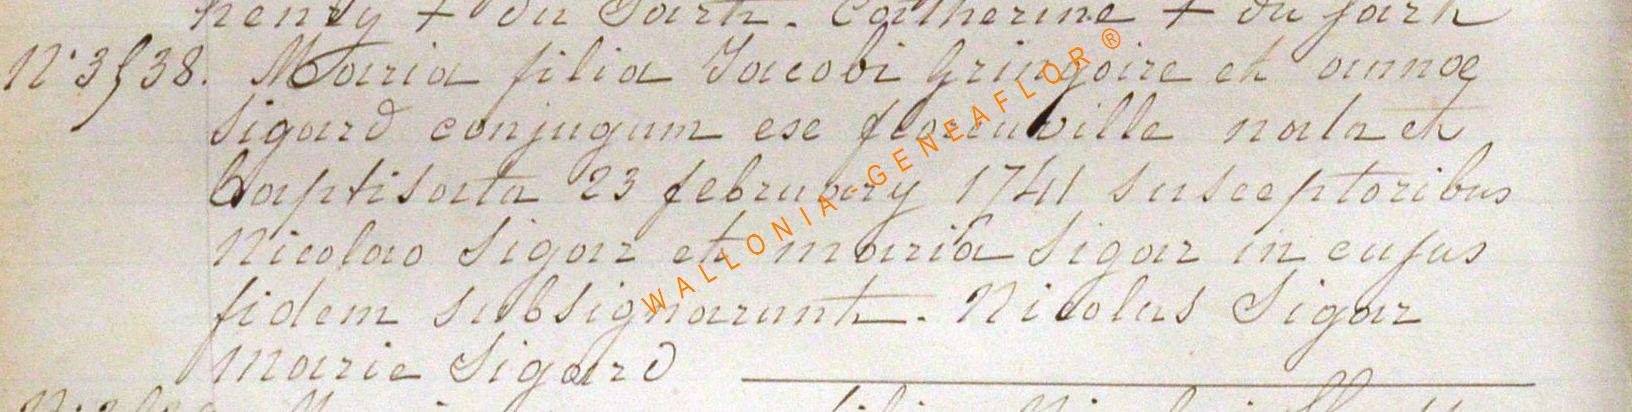 henry + du Sart. Catherine + du sart
N° 3538. Maria filia Jacobi Gringoire et annæ
Sigard conjugum exe florenville nata et
baptisata 23 february 1741 susceptoribus
Nicolao Sigar et maria Sigar in cujus
fidem subsignarunt. Nicolas Sigar
Marie Sigard
WALLONIA-GENEAFLOR®